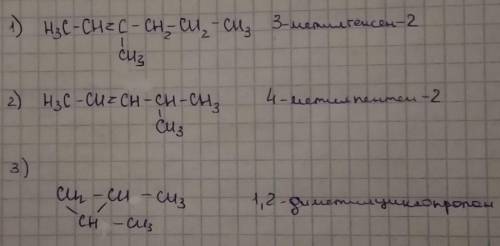 1) H₃C-CH=C-CH₂-CH₂-CH₃ 3-метилгексен-2
CH₃
2) H₃C-CH=CH-CH-CH₃ 4-метилпентен-2
CH₃
3)
CH₂ - CH - CH₃
CH - CH₃ 1,2-диметилциклопропан